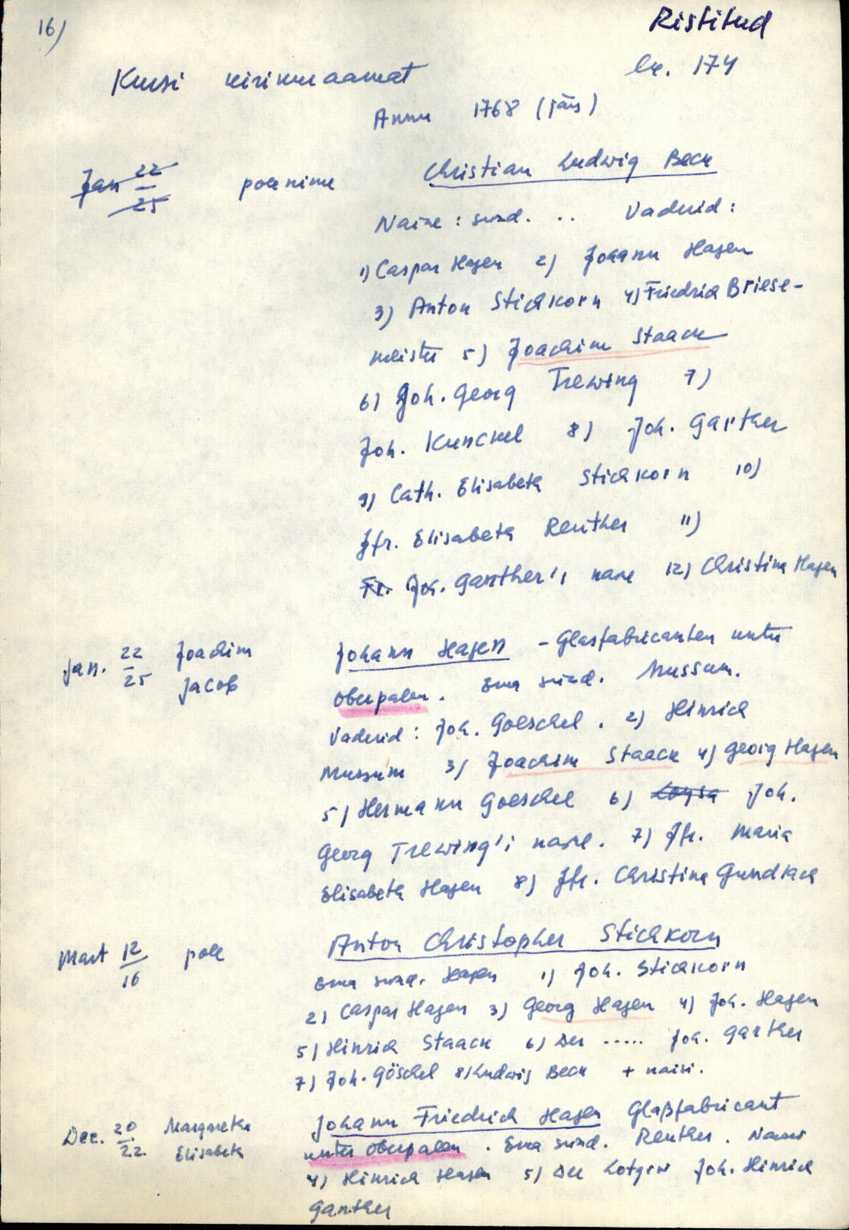 16)
Ristitud
Kursi kirikuraamat lk. 174
Anno 1768 (järg)
Jan 22/25 pole nime Christian Ludwig Beck
Naine: sünd. .. Vaderid:
1) Caspar Hagen 2) Johann Hagen
3) Anton Stichkorn 4) Friedrich Briese-
meister 5) Joachim Staack
6) Joh. Georg Trewing 7)
Joh. Kunckel 8) Joh. Garther
9) Cath. Elisabeth Stichkorn 10)
Jfr. Elisabeth Reuther 11)
Fr. Joh. Ganther'i nane 12) Christina Hagen
Jan. 22/25 Joachim Johann Hagen - Glasfabricanten unter
Jacob Oberpalen. Ema sünd. Mussum.
Vaderid: Joh. Goeschel. 2) Hinrich
Mussum 3) Joachim Staack 4) Georg Hagen
5) Hermann Goeschel 6) Joh.
Georg Trewing'i nane. 7) Jfr. Maria
Elisabeth Hagen 8) Jfr. Christina Gundlach
Mart 12/16 pole Anton Christopher Stichkorn
Ema sünd. Hagen 1) Joh. Stichkorn
2) Caspar Hagen 3) Georg Hagen 4) Joh. Hagen
5) Hinrich Staack 6) Der ..... Joh. Garther
7) Joh. Göschel 8) Ludwig Beck + naisi.
Dec. 20/22 Margaretha Johann Friedrich Hagen Glaßfabricant
Elisabeth unter Oberpalen. Ema sünd. Reuther.
4) Hinrich Hagen 5) Der Joh. Hinrich
Ganther